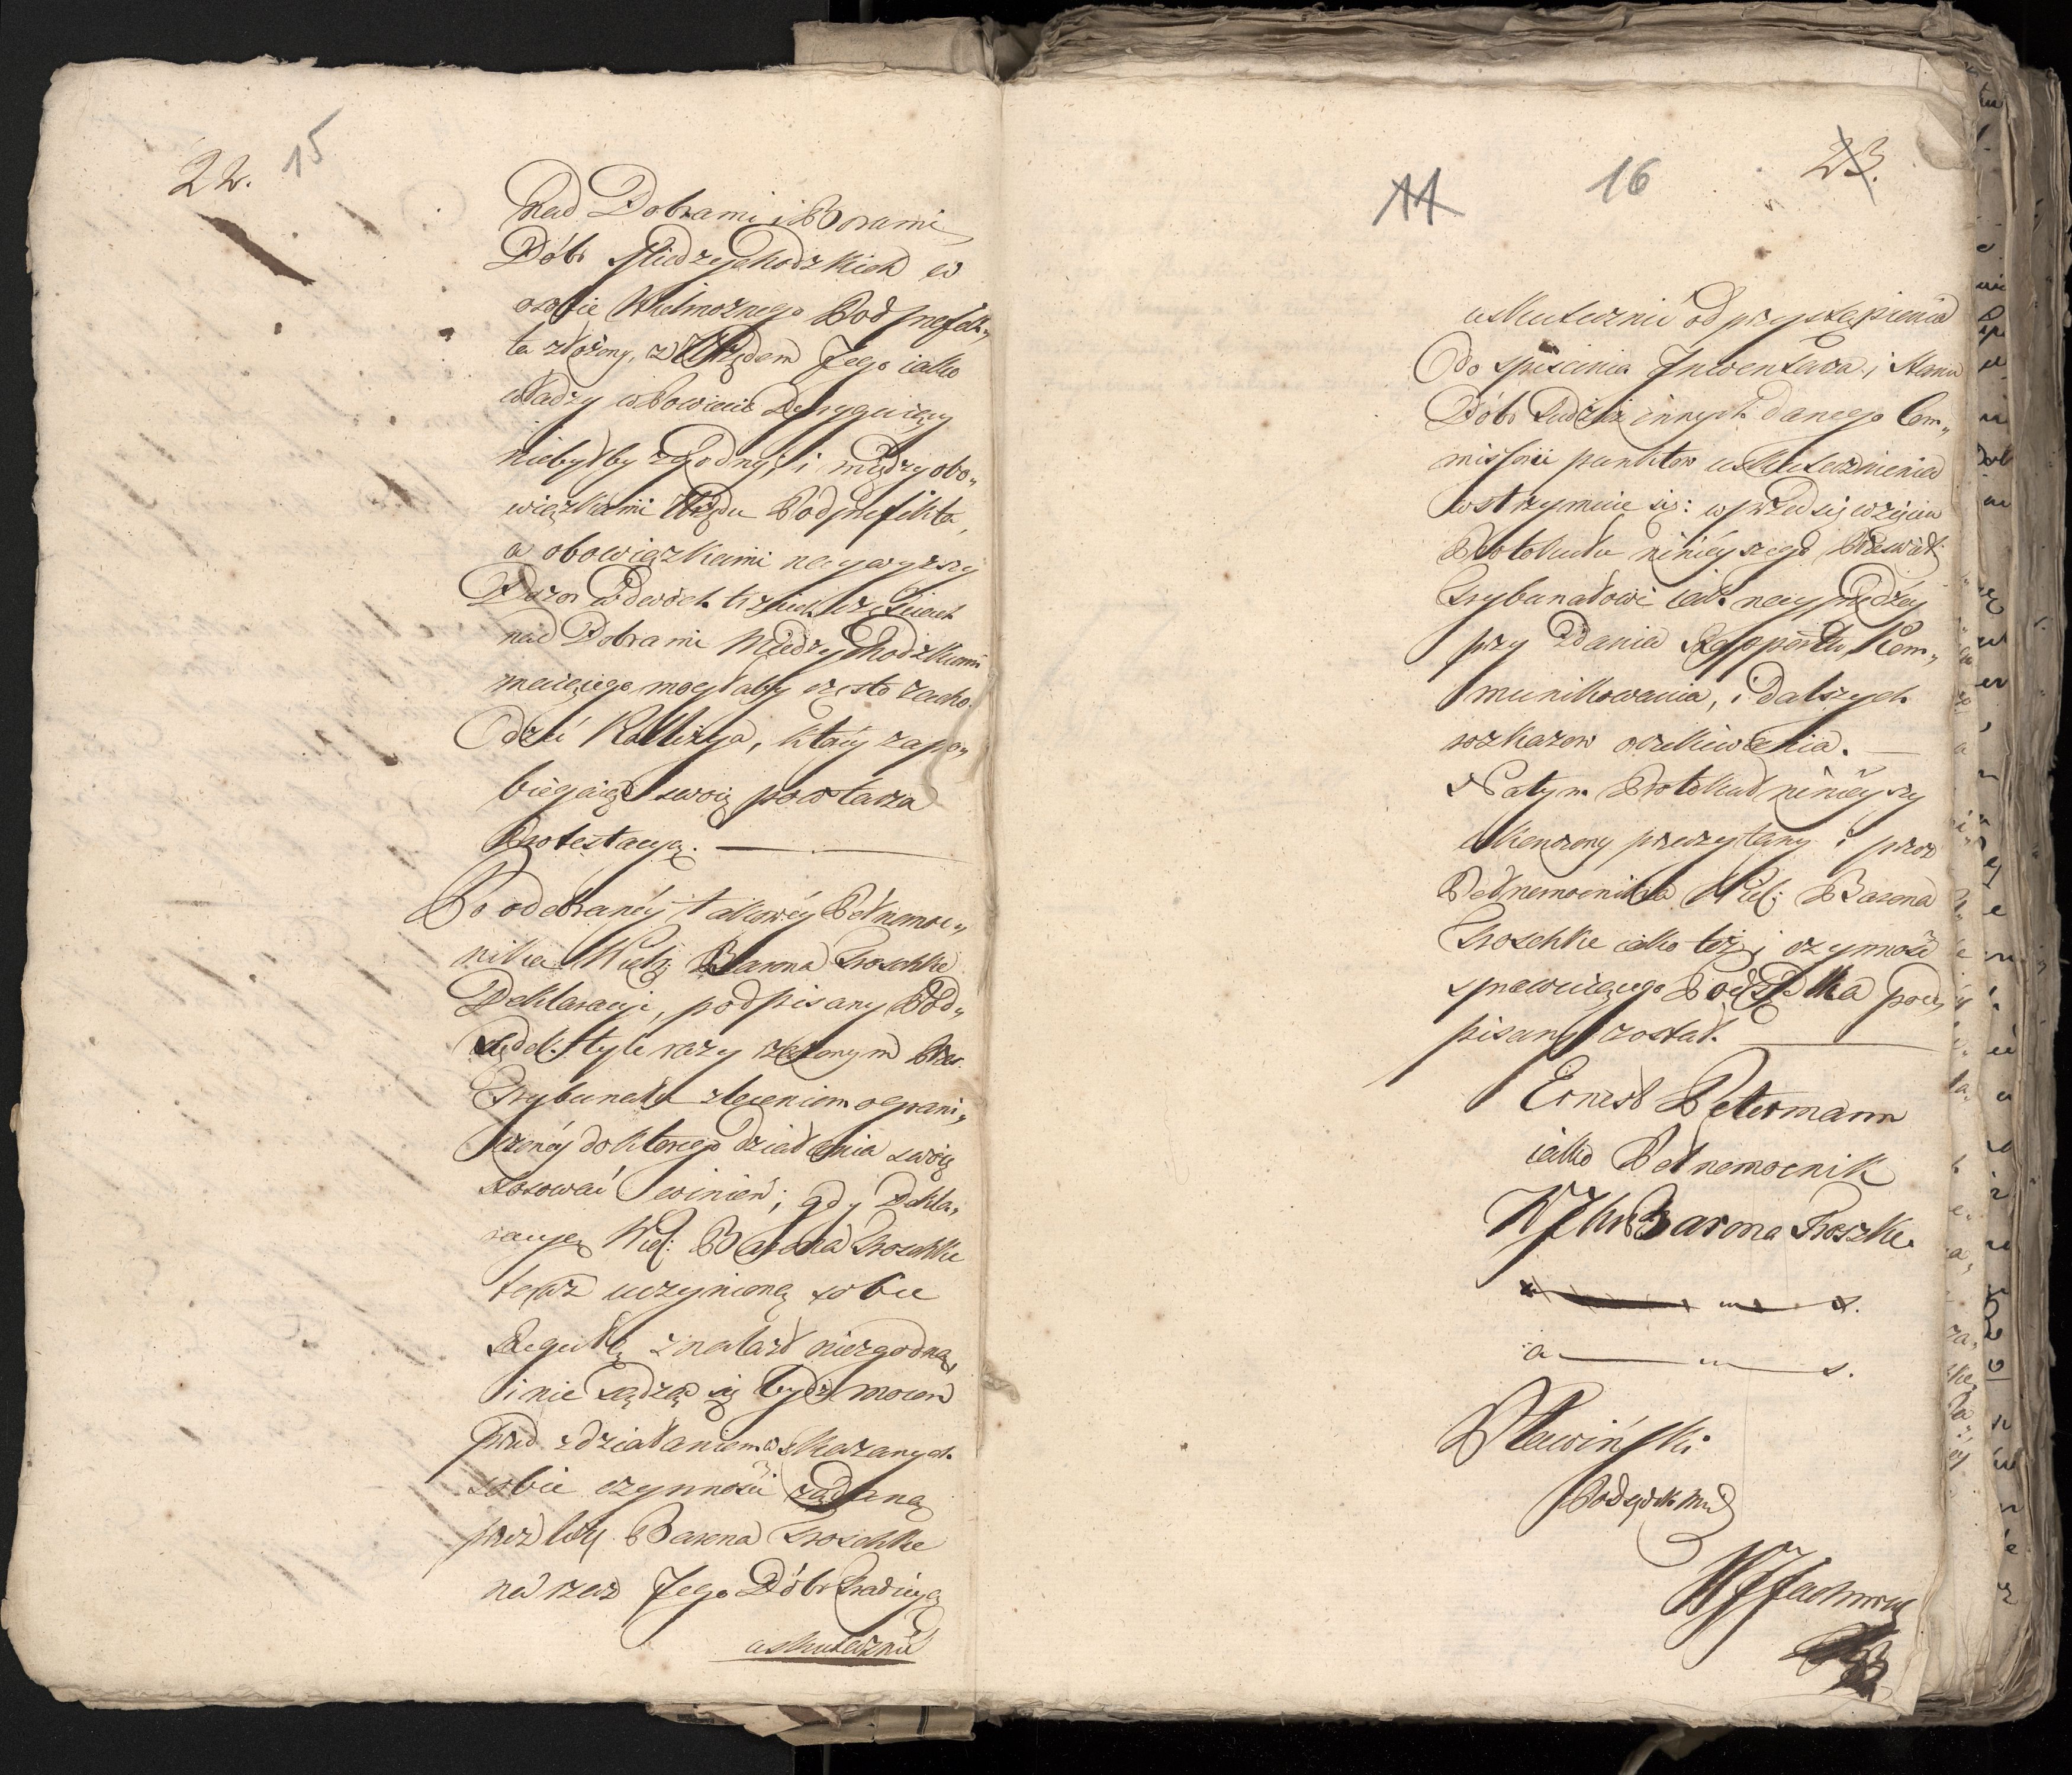 22. 15
Nad Dobrami i Borami
Dóbr Międzychodzkich w
osobie Wielmożnego Podprefek„
ta złożony, z Urzędem Jego iako
władzy w Powiecie
niebyłby zgodny, i między obo„
wiązkami Urzędu Podprefekta,
a obowiązkami naywyższy
Dozor w dwóch trzecich częściach
nad Dobrami Międzychodzkiemi
maiącego mogłaby często zacho„
dzić Kollizya, któréy zapo„
biegaiąc swoią powtarza
Protestacyą.
Po odebranéy takowéy Pełnomoc„
nika Wielg. Barona Troschke
Deklaracyi, podpisany Pod„
sędek tyle razy rzeczonym Prześ.
Trybunału zleceniem ograni„
czonéy do którego działania swoie
stosować winien; gdy Dekla„
racyą Wiel: Barona Troschke
teraz uczynioną sobie
Regułą znalazł niezgodną,
i nie sądząc się bydź mocen
przed zdziałaniem wskazanych
sobie czynności żądaną
przez Wg. Barona Troschke
na rzecz Jego Dóbr Tradicyą
uskutecznić
14 16 23.
uskutecznić od przystąpienia
do spisania Inwentarza i Stanu
Dóbr tudzież innych danego Com„
missorii punktow uskutecznienia
wstrzymuie się: w przedsięwzięciu
Protokułu ninieyszego Przeświet:
Trybunałowi iak nayprędzéy
przy Zdaniu Rapportu, Kom„
munikowania, i dalszych
rozkazow oczekiwania.
Na tym Protokuł ninieyszy
ukończony przeczytany i przez
Pełnomocnika Wiel: Barona
Troschke iako też i czynność
sprawuiącego Podsędka pod„
pisany został.
Ernest Petermann
iako Pełnomocnik
Barona Troszke.
a s.
Sławiński
Podsędek